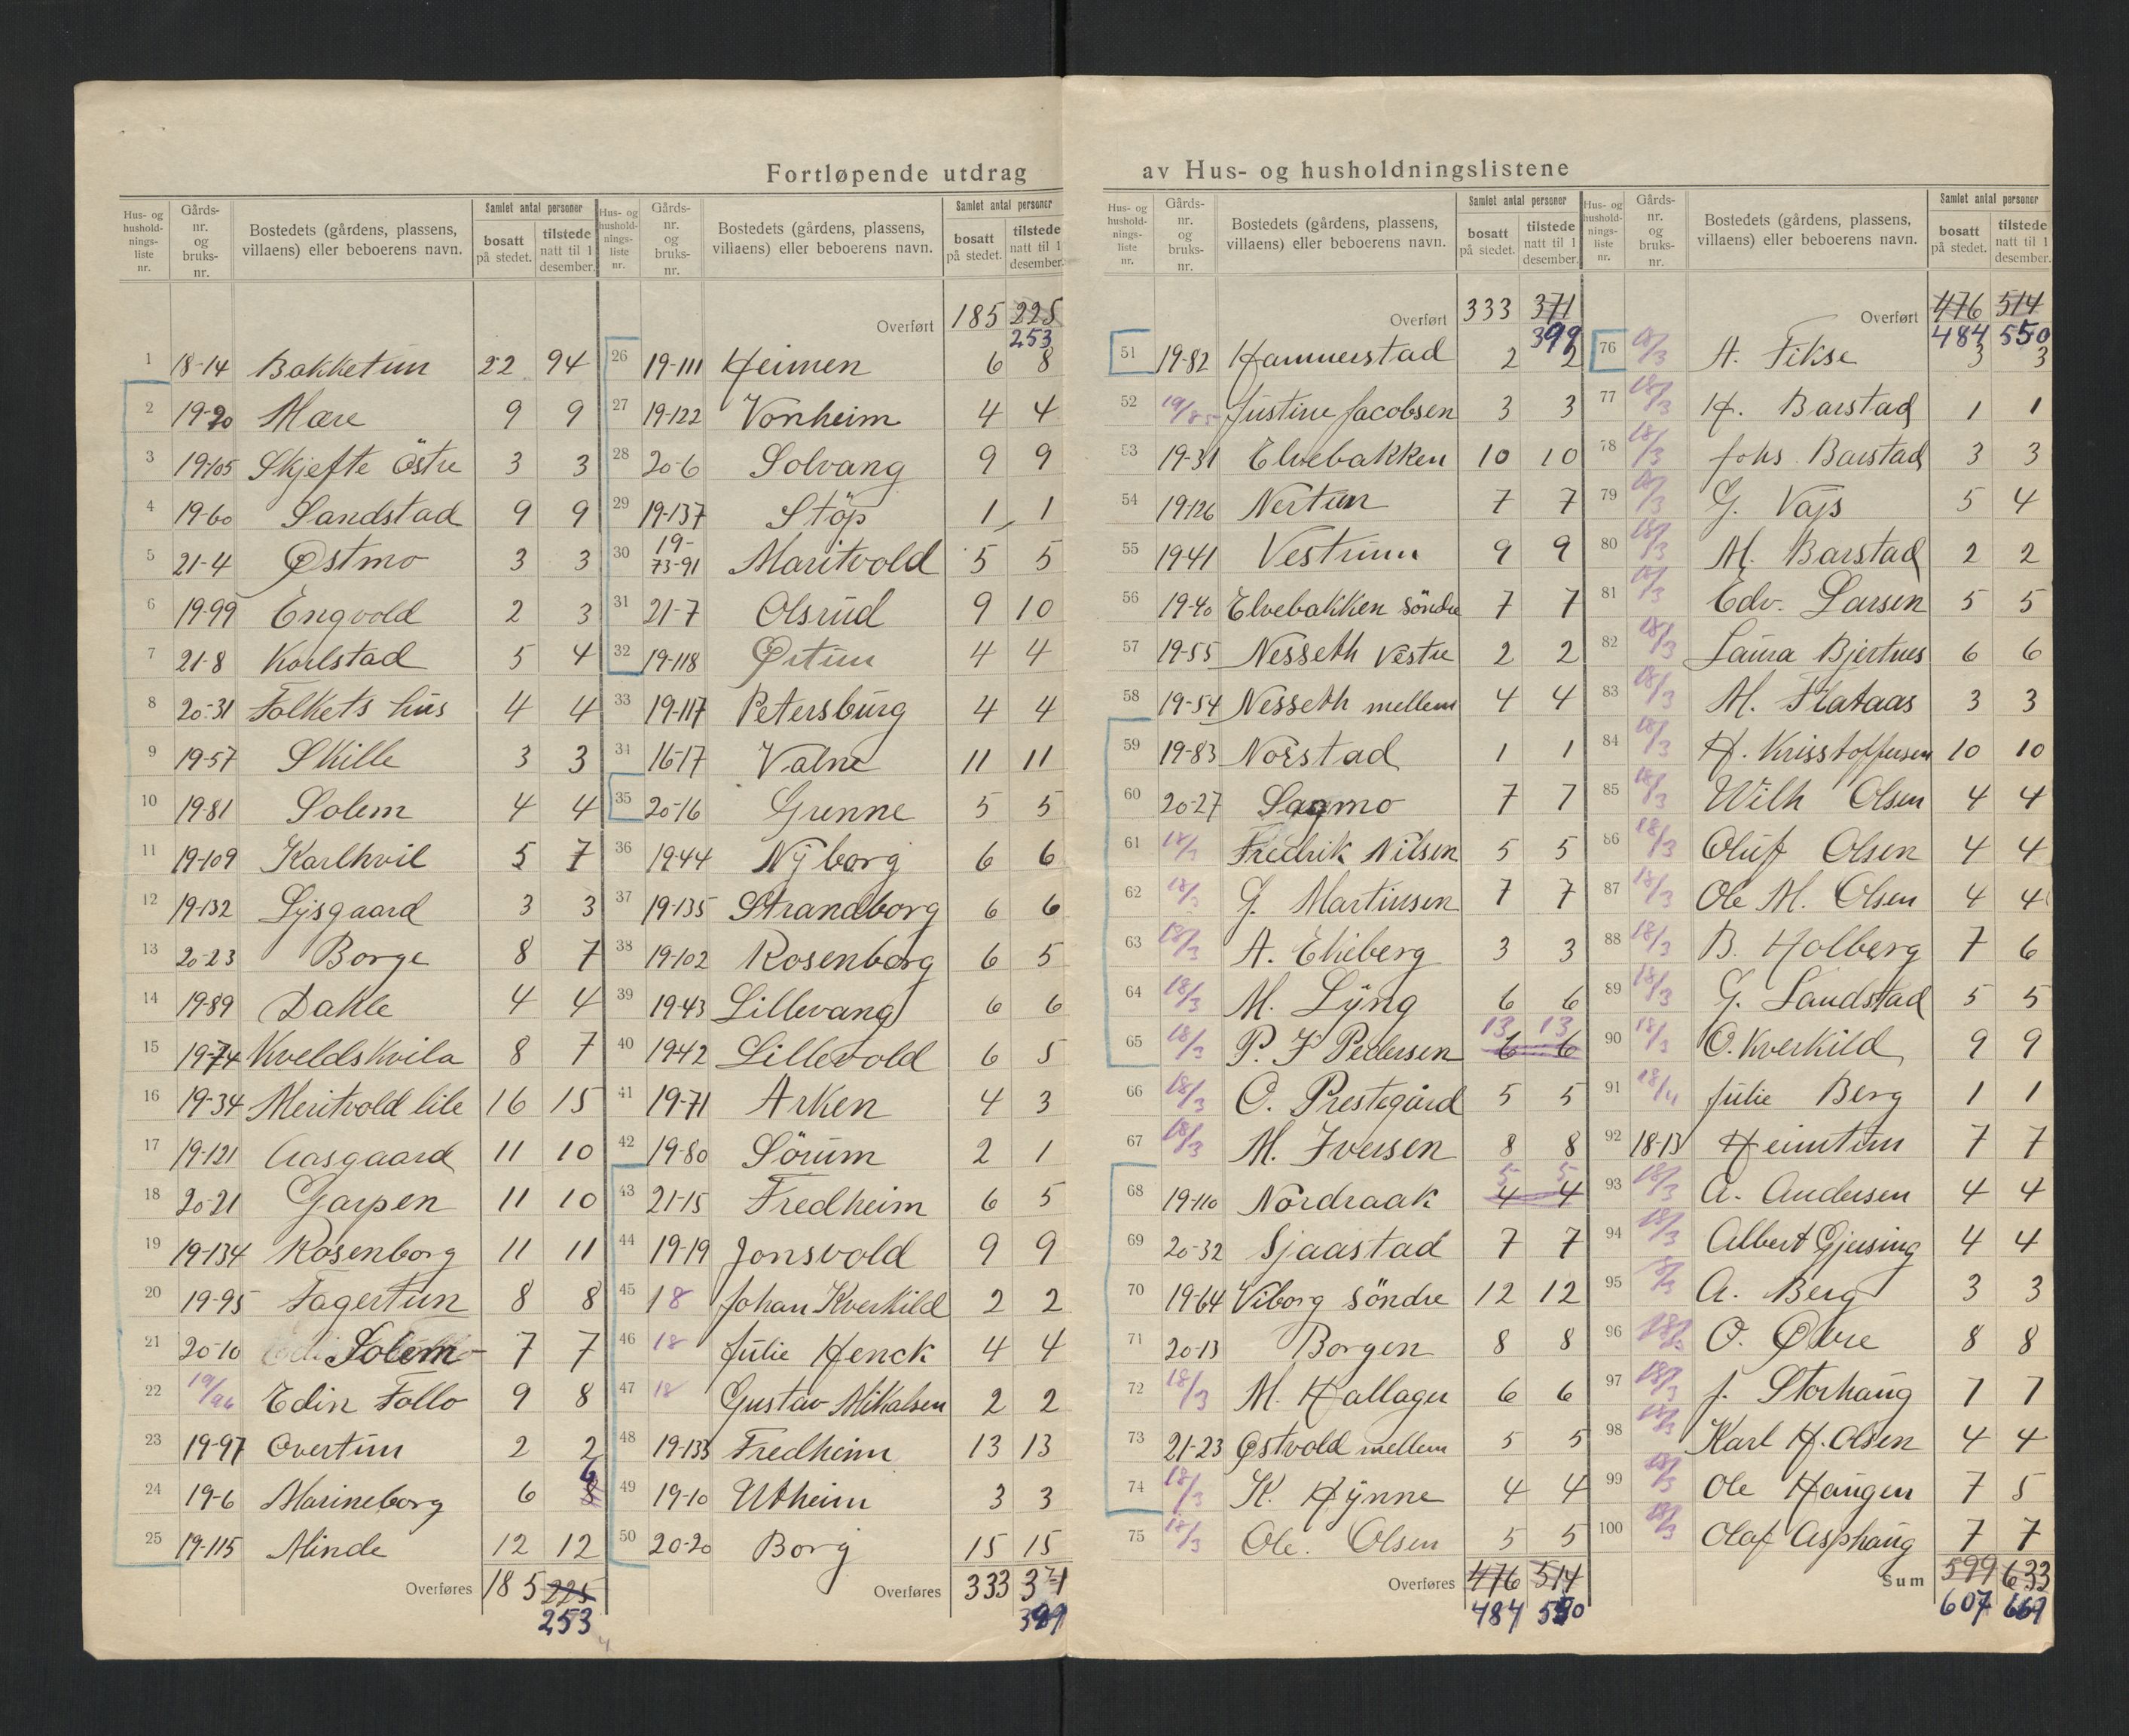 Fortløpende utdrag av Hus- og husholdningslistene
Hus- og hushold-nings-liste nr. Gårds-nr. og bruks-nr. Bostedets (gårdens, plassens, villaens) eller beboerens navn. Samlet antal personer bosatt på stedet. tilstede natt til 1 desember.
1 18-14 Bakketun 22 94
2 19-20 Mære 9 9
3 19-105 Skjefte östre 3 3
4 19-60 Sandstad 9 9
5 21-4 Østmo 3 3
6 19-99 Engvold 2 3
7 21-8 Karlstad 5 4
8 20-31 Folkets hus 4 4
9 19-57 Skille 3 3
10 19-81 Solem 4 4
11 19-109 Karlhvil 5 7
12 19-132 Lysgaard 3 3
13 20-23 Borge 8 7
14 19-89 Dahle 4 4
15 19-74 Kveldskvila 8 7
16 19-34 Meritvold lile 16 15
17 19-121 Aasgaard 11 10
18 20-21 Garpen 11 10
19 19-134 Rosenborg 11 11
20 19-95 Fagertun 8 8
21 20-10 Solem 7 7
22 19/96 Edin Follo 9 8
23 19-97 Overtun 2 2
24 19-6 Marineborg 6 8 6
25 19-115 Minde 12 12
Overføres 185 225
253
Hus- og hushold-nings-liste nr. Gårds-nr. og bruks-nr. Bostedets (gårdens, plassens, villaens) eller beboerens navn. Samlet antal personer bosatt på stedet. tilstede natt til 1 desember.
Overført 185 225
253
26 19-111 Heimen 6 8
27 19-122 Vonheim 4 4
28 20-6 Solvang 9 9
29 19-137 Stöp 1 1
30 19-73-91 Maritvold 5 5
31 21-7 Olsrud 9 10
32 19-118 Örtun 4 4
33 19-117 Petersburg 4 4
34 16-17 Valne 11 11
35 20-16 Grenne 5 5
36 19-44 Nyborg 6 6
37 19-135 Strandborg 6 6
38 19-102 Rosenborg 6 5
39 19-43 Lillevang 6 6
40 19-42 Lillevold 6 5
41 19-71 Arken 4 3
42 19-80 Sörum 2 1
43 21-15 Fredheim 6 5
44 19-19 Jonsvold 9 9
45 18 Johan Kverkild 2 2
46 18 Julie Henck 4 4
47 18 Gustav Mikalsen 2 2
48 19-133 Fredheim 13 13
49 19-10 Utheim 3 3
50 20-20 Borg 15 15
Overføres 333 371
399
Hus- og hushold-nings-liste nr. Gårds-nr. og bruks-nr. Bostedets (gårdens, plassens, villaens) eller beboerens navn. Samlet antal personer bosatt på stedet. tilstede natt til 1 desember.
Overført 333 371
399
51 19-82 Hammerstad 2 2
52 19/85 Justine Jacobsen 3 3
53 19-31 Elvebakken 10 10
54 19-126 Nertun 7 7
55 19-41 Vestrum 9 9
56 19-40 Elvebakken söndre 7 7
57 19-55 Nesseth Vestre 2 2
58 19-54 Nesseth mellem 4 4
59 19-83 Norstad 1 1
60 20-27 Sagmo 7 7
61 18/3 Fredrik Nilsen 5 5
62 18/3 G. Martinsen 7 7
63 18/3 A. Ekeberg 3 3
64 18/3 M. Lyng 6 6
65 18/3 P. F Pedersen 6 6 13 13
66 18/3 O. Prestegård 5 5
67 18/3 M. Iversen 8 8
68 19-110 Nordraak 4 4 5 5
69 20-32 Sjaastad 7 7
70 19-64 Viborg söndre 12 12
71 20-13 Borgen 8 8
72 18/3 M. Hallager 6 6
73 21-23 Østvold mellem 5 5
74 18/3 K. Hynne 4 4
75 18/3 Ole. Olsen 5 5
Overføres 476 514
484 550
Hus- og hushold-nings-liste nr. Gårds-nr. og bruks-nr. Bostedets (gårdens, plassens, villaens) eller beboerens navn. Samlet antal personer bosatt på stedet. tilstede natt til 1 desember.
Overført 476 514
484 550
76 18/3 A. Fikse 3 3
77 18/3 H. Barstad 1 1
78 18/3 Johs Barstad 3 3
79 18/3 G. Vajs 5 4
80 18/3 M. Barstad 2 2
81 18/3 Edv. Larsen 5 5
82 18/3 Laura Bjertnes 6 6
83 18/3 M. Flataas 3 3
84 18/3 H. Krisstoffersen 10 10
85 18/3 Wilh Olsen 4 4
86 18/3 Oluf Olsen 4 4
87 18/3 Ole M. Olsen 4 4
88 18/3 B. Holberg 7 6
89 18/3 G. Sandstad 5 5
90 18/3 O. Kverkild 9 9
91 18/4 Julie Berg 1 1
92 18-13 Heimtun 7 7
93 18/3 A. Andersen 4 4
94 18/3 Albert Gjersing 4 4
95 18/3 A. Berg 3 3
96 18/3 O. Øvre 8 8
97 18/3 J. Storhaug 7 7
98 18/3 Karl H. Olsen 4 4
99 18/3 Ole Haugen 7 5
100 18/3 Olaf Asphaug 7 7
Sum 599 633
607 669